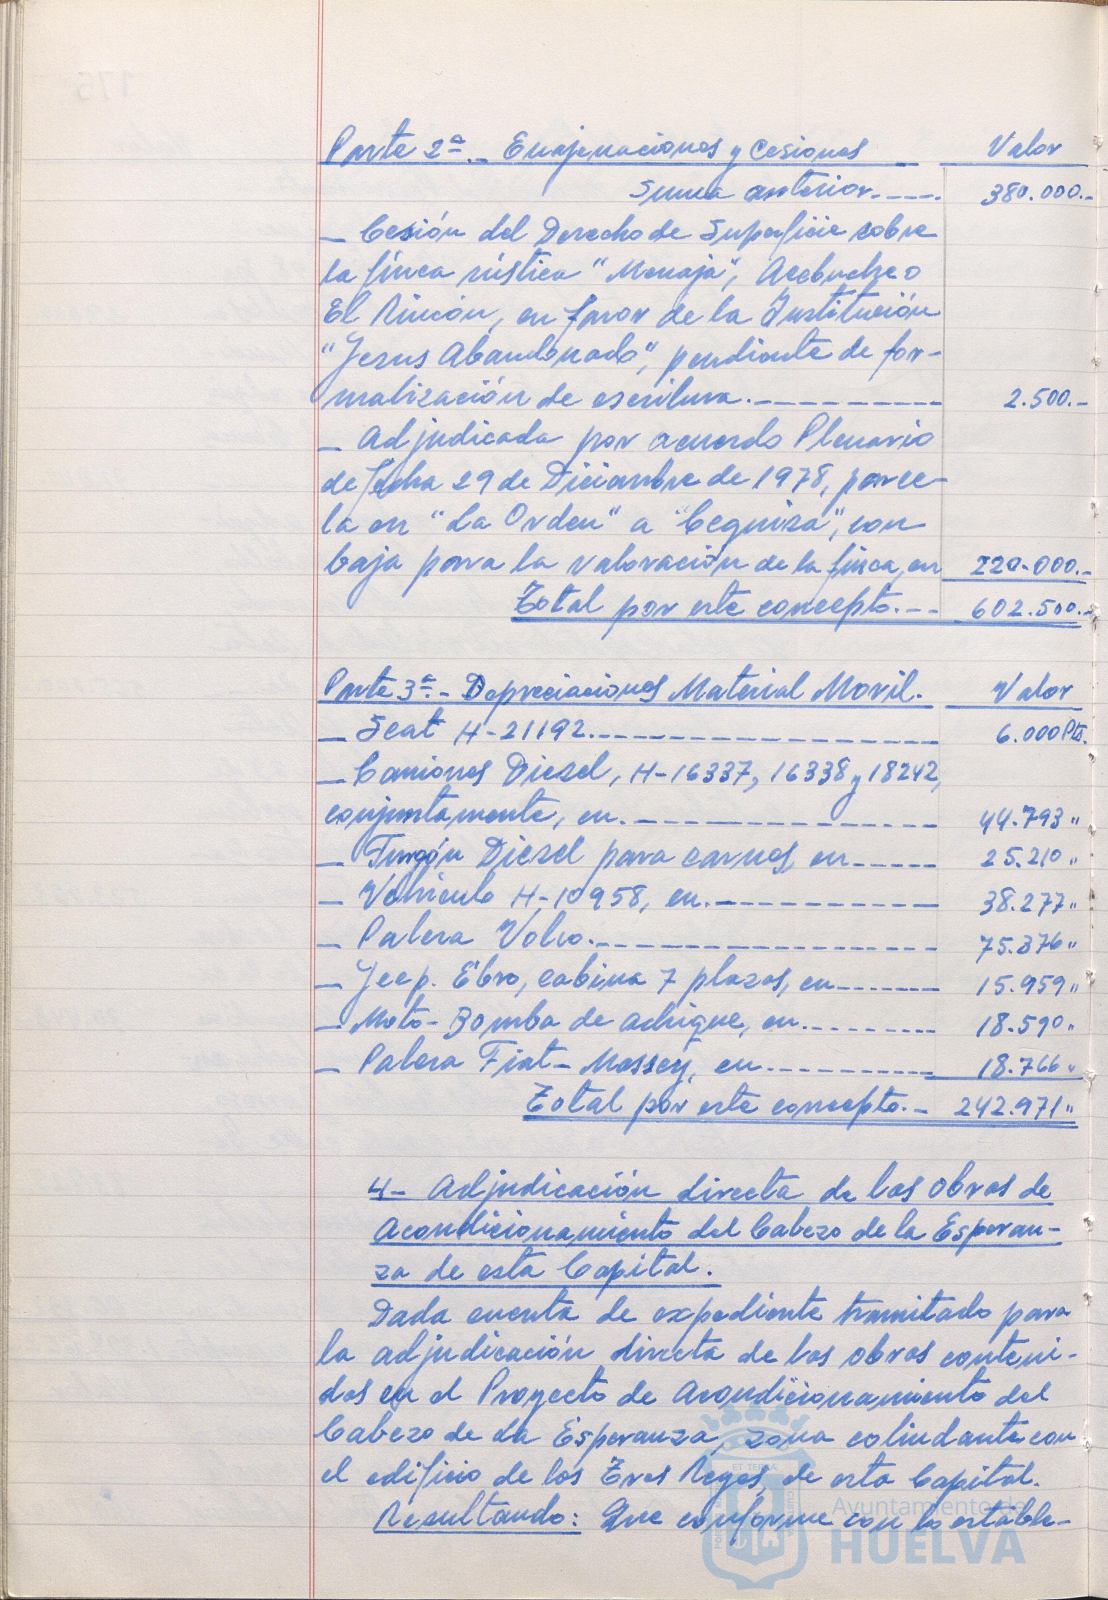 Parte 2ª.- Enajenaciones y Cesiones Valor
Suma anterior.---- 380.000.-
- Cesión del Derecho de Superficie sobre
la finca rústica "Monaja", Acebuche o
El Rincón, en favor de la Institución
"Jesus Abandonado", pendiente de for-
malización de escritura.---------- 2.500.-
- Adjudicada por acuerdo Plenario
de fecha 29 de Diciembre de 1978, parce-
la en "La Orden" a "Cequisa", con
baja para la valoración de la finca, en 220.000.-
Total por este concepto.-- 602.500.-
Parte 3ª.- Depreciaciones Material Movil. Valor
- Seat H-21192.---------------- 6.000 Pts.
- Camiones Diesel, H-16337, 16338 y 18242,
conjuntamente, en.-------------- 44.793 "
- Furgón Diesel para carnes, en----- 25.210 "
- Vehículo H-10958, en.----------- 38.277 "
- Palera Volvo.----------------- 75.376 "
- Jeep. Ebro, cabina 7 plazas, en------ 15.959 "
- Moto-Bomba de achique, en.-------- 18.590 "
- Palera Fiat-Massey, en---------- 18.766 "
Total por este concepto.- 242.971 "
4- Adjudicación directa de las obras de
Acondicionamiento del Cabezo de la Esperan-
za de esta Capital.
Dada cuenta de expediente tramitado para
la adjudicación directa de las obras conteni-
das en el Proyecto de Acondicionamiento del
Cabezo de la Esperanza, zona colindante con
el edificio de los Tres Reyes, de esta Capital.
Resultando: Que conforme con lo estable-
Ayuntamiento de
HUELVA